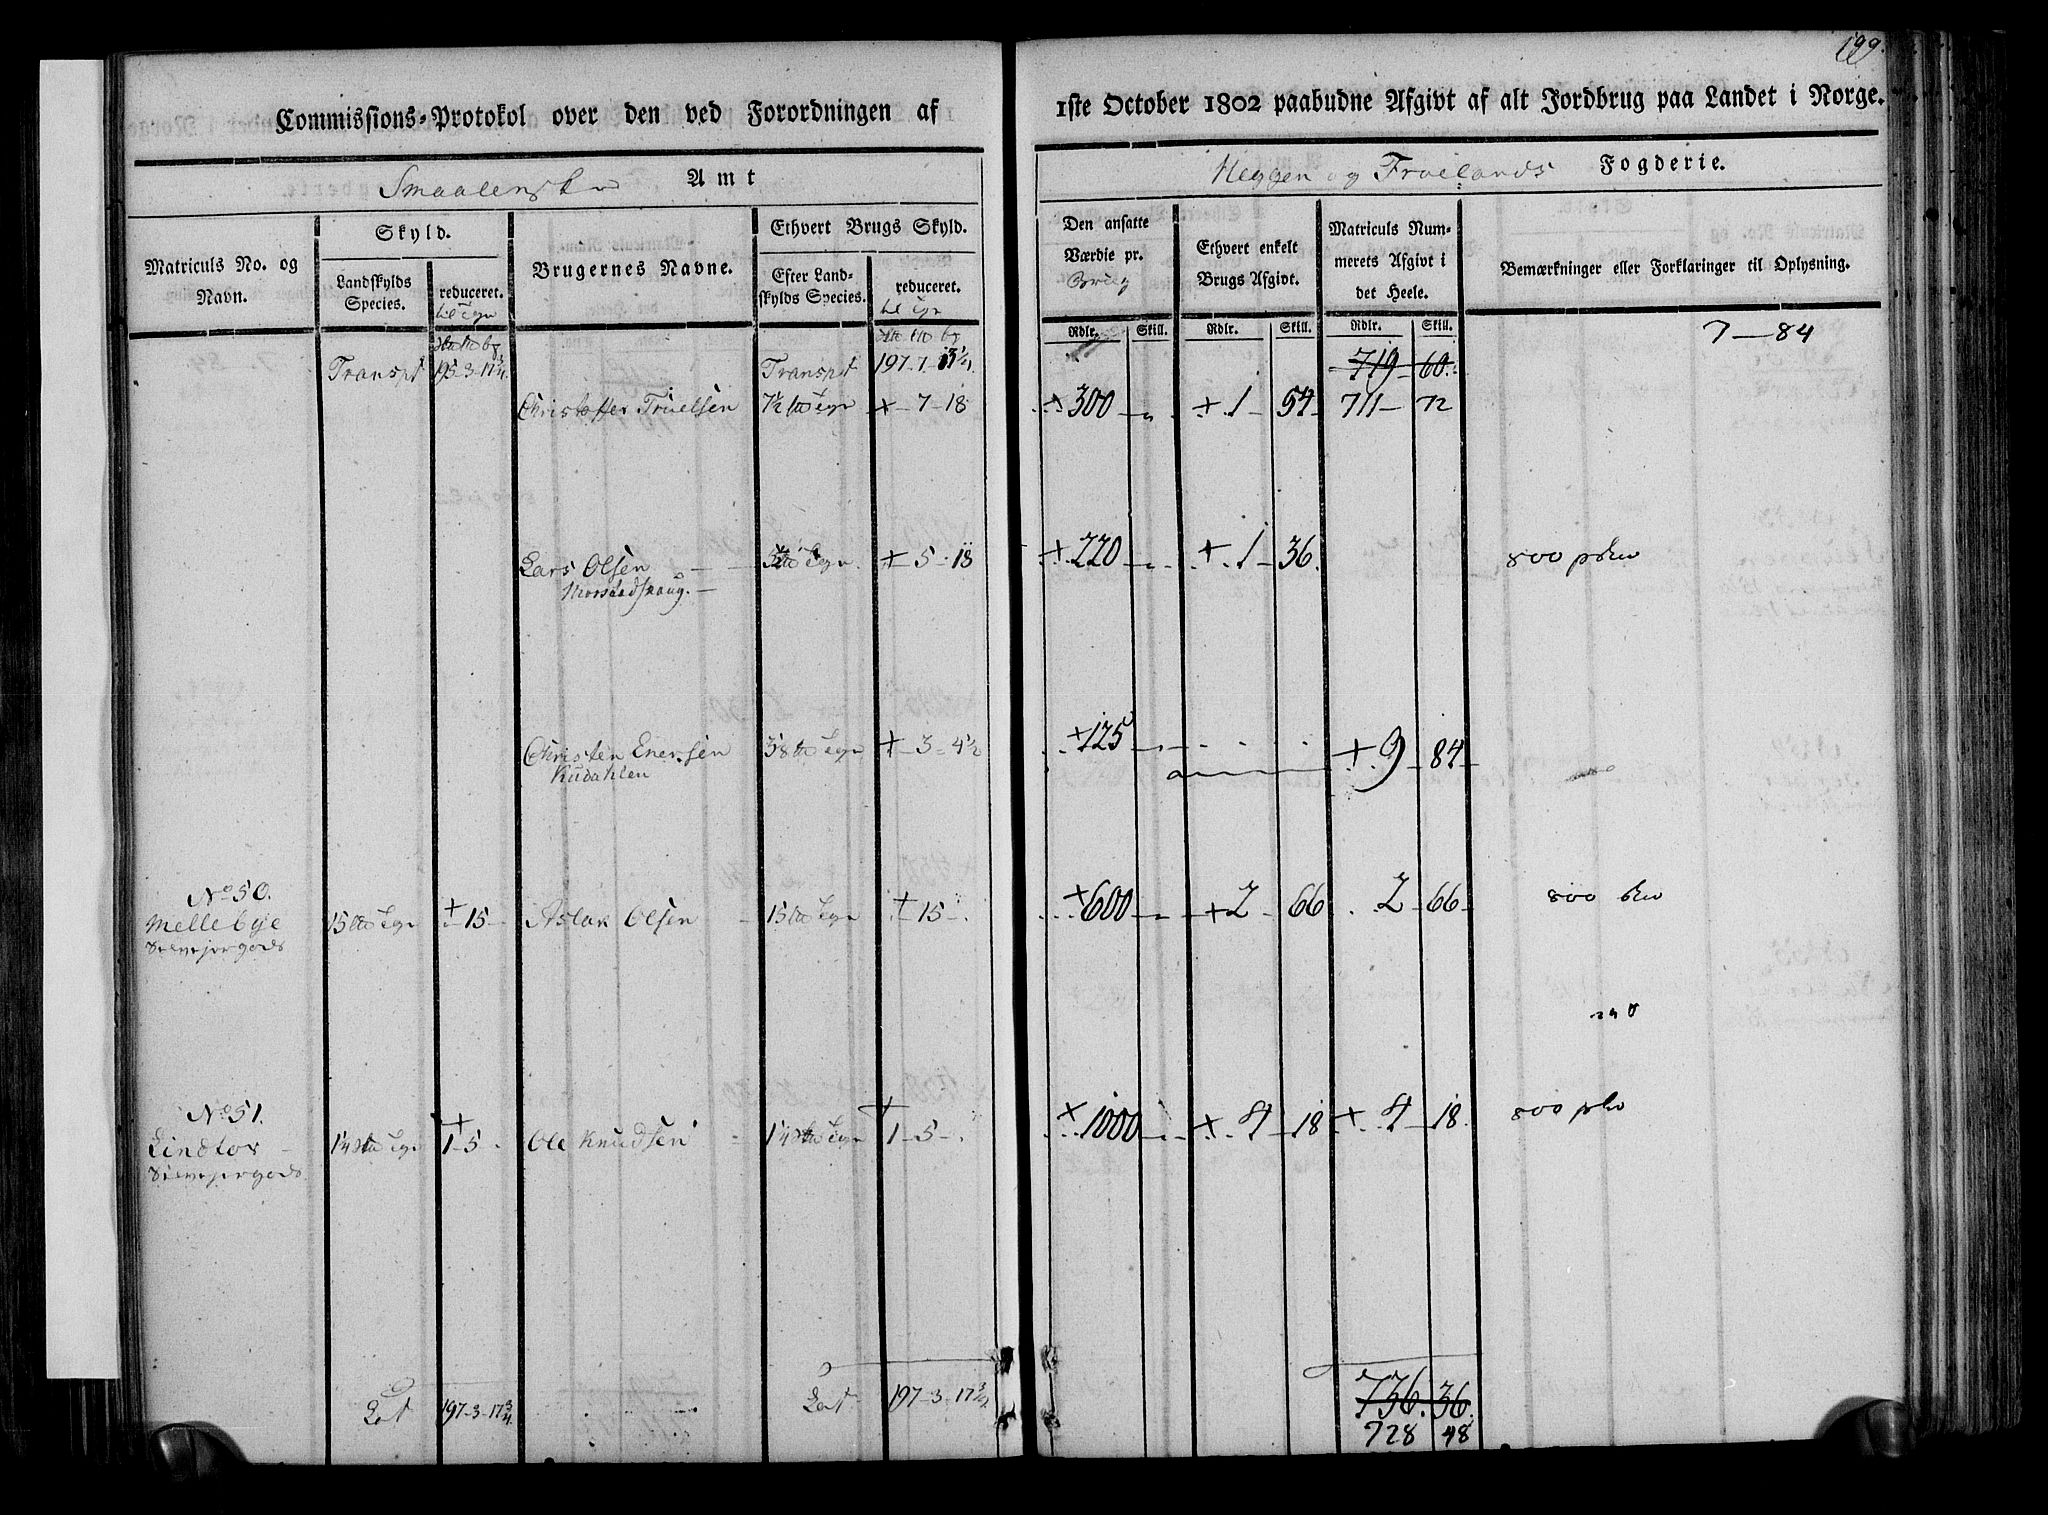 199.
Commissions-Protokol over den ved Forordningen af 1ste October 1802 paabudne Afgivt af alt Jordbrug paa Landet i Norge.
Smaalenske Amt
Heggen og Frøelands Fogderie.
Matriculs No. og Navn.
Skyld.
Landskylds Species.
reduceret.
til Tgn
Brugernes Navne.
Ethvert Brugs Skyld.
Efter Landskylds Species.
reduceret.
til Tgn
Den ansatte Værdie pr. Brug
Ethvert enkelt Brugs Afgivt.
Matriculs Nummerets Afgivt i det Heele.
Bemærkninger eller Forklaringer til Oplysning.
Rdlr. Skill. Rdlr. Skill. Rdlr. Skill.
7 — 84
Transpt 195-3-17¾ Transpt 197-7-13½ 719 60
Christoffer Truelsen 7½ Tgn + 7-18 + 300 + 1 54 711 72
Lars Olsen Tgn + 5-18 + 220 + 1 36 800
Christen Enersen Tgn + 3-4½ + 125 + 9 84
Kudahlen
No 50.
Mellebye 15 Tgn + 15 Aslak Olsen 15 Tgn + 15 + 600 + 2 66 2 66 800
Selvejergods
No 51.
Lindtor 1¼ Tgn + 1-5 Ole Knudsen 1¼ Tgn + 1-5 + 1000 + 4 18 + 4 18 800
Selvejergods
Lat 197-3-17¾ Lat 197-3-17¾ 736 36
728 48